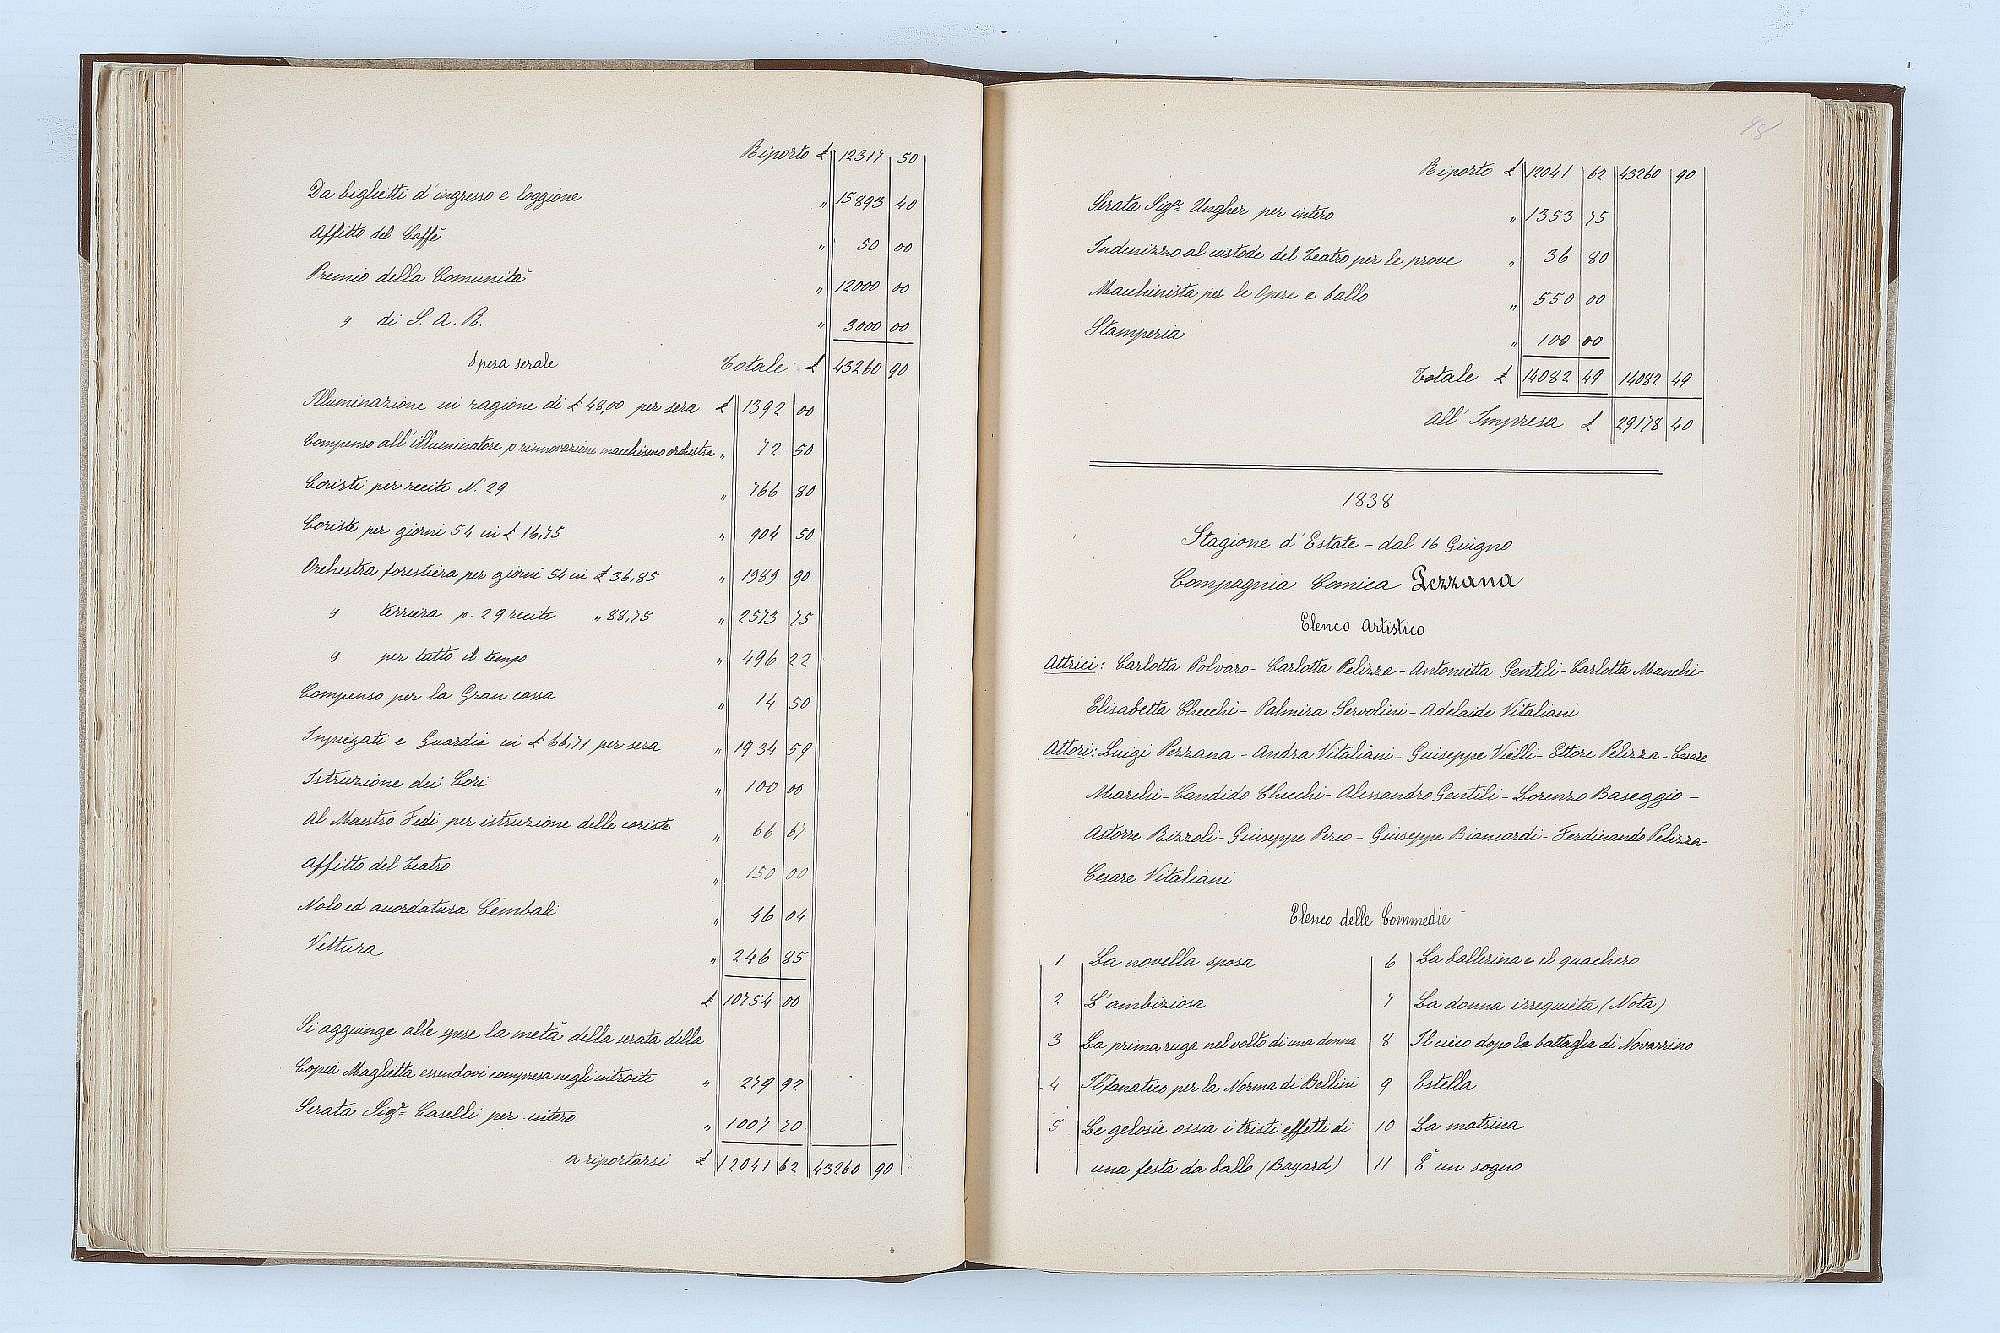 Riporto £ 12317 50
Da biglietti d'ingresso e loggione " 15893 40
Affitto del Caffè " 50 00
Premio della Comunità " 12000 00
" di S. A. R. " 3000 00
Spesa serale Totale £ 43260 90
Illuminazione in ragione di £ 48,00 per sera £ 1392 00
Compenso all'illuminatore p rinnovazione macchinismo orchestra " 72 50
Coristi per recite N. 29 " 766 80
Coriste per giorni 54 in £ 16,75 " 904 50
Orchestra forestiera per giorni 54 in £ 36,85 " 1989 90
" terriera p. 29 recite " 88,75 " 2573 75
" per tutto il tempo " 496 22
Compenso per la Gran cassa " 14 50
Impiegati e Guardie in £ 66,71 per sera " 1934 59
Istruzione dei Cori " 100 00
Al Maestro Fedi per istruzione delle coriste " 66 67
Affitto del Teatro " 150 00
Nolo ed accordatura Cembali " 46 04
Vettura " 246 85
£ 10754 00
Si aggiunge alle spese la metà della serata della
Copia Maglietta essendovi compresa negli introiti " 279 92
Serata Sigr. Caselli per intero " 1007 70
a riportarsi £ 12041 62 43260 90
Riporto £ 12041 62 43260 90
Serata Sigra Ungher per intero " 1353 75
Indenizzo al custode del Teatro per le prove " 36 80
Macchinista per le Opere e ballo " 550 00
Stamperia " 100 00
Totale £ 14082 49 14082 49
All' Impresa £ 29178 40
1838
Stagione d'Estate - dal 16 Giugno
Compagnia Comica Pezzana
Elenco Artistico
Attrici: Carlotta Polvaro - Carlotta Pelizza - Antonietta Gentili - Carlotta Manchi
Elisabetta Checchi - Palmira Servolini - Adelaide Vitaliani
Attori: Luigi Pezzana - Andra Vitaliani - Giuseppe Vielli - Ettore Pelizza - Cesare
Marchi - Candido Checchi - Alessandro Gentili - Lorenzo Baseggio -
Astorre Bizzoli - Giuseppe Perco - Giuseppe Biancardi - Ferdinando Pelizza -
Cesare Vitaliani
Elenco delle Commedie
1 La novella sposa
2 L'ambiziosa
3 La prima ruga nel volto di una donna
4 Il fanatico per la Norma di Bellini
5 Le gelosie ossia i tristi effetti di
una festa da ballo (Bayard)
6 La ballerina e il quachero
7 La donna irrequieta (Nota)
8 Il cieco dopo la battaglia di Novarrino
9 Estella
10 La matrina
11 È un sogno